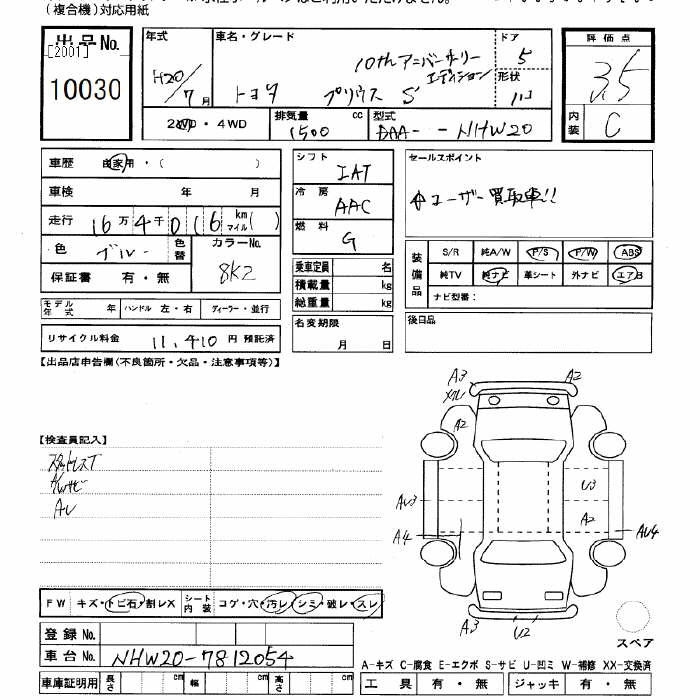 (複合機)対応用紙
出品No.
[2001]
10030
年式
H20/7月
車名・グレード
10thアニバーサリー
エディション
トヨタ プリウス S
ドア
5
形状
評価点
3.5
内装
C
2WD・4WD
排気量
1500 cc
型式
DAA-- NHW20
車歴 自家用・( )
車検 年 月
走行 16万4千016 km マイル( )
色 ブルー
色替
カラーNo.
8K2
保証書 有・無
モデル年式 年 ハンドル 左・右 ディーラー・並行
リサイクル料金 11,410 円 預託済
シフト
IAT
冷房
AAC
燃料
G
乗車定員 名
積載量 kg
総重量 kg
名変期限
月 日
セールスポイント
ユーザー買取車!!
装備品
S/R 純A/W P/S P/W ABS
純TV 純ナビ 革シート 外ナビ エアB
ナビ型番:
後日品
【出品店申告欄(不良箇所・欠品・注意事項等)】
【検査員記入】
スタッドレスT
A/Wサビ
AU
A3
メクレ
A2
A2
AU3
U3
A2
A4
AU4
A3
U2
スペア
FW キズ・トビ石・割レX シート内装 コゲ・穴・汚レ・シミ・破レ・スレ
登録No.
車台No. NHW20-7812054
車庫証明用 長さ cm 幅 cm 高さ cm
A-キズ C-腐食 E-エクボ S-サビ U-凹ミ W-補修 XX-交換済
工具 有・無 ジャッキ 有・無